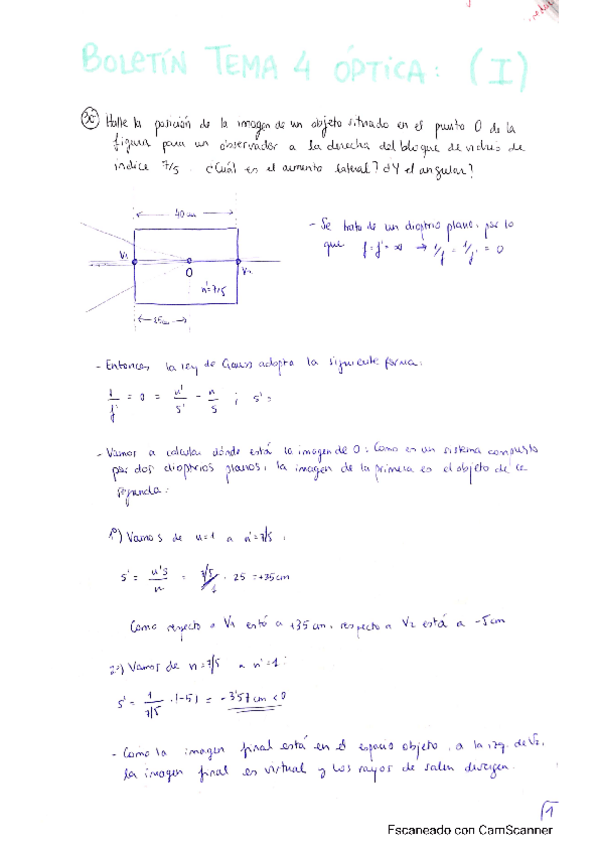 BOLETÍN TEMA 4 ÓPTICA: (I)
Halle la posición de la imagen de un objeto situado en el punto O de la
figura para un observador a la derecha del bloque de vidrio de
índice 7/5. ¿Cuál es el aumento lateral? ¿Y el angular?
40 cm
V1
O
V2
n'=7/5
25cm
- Se trata de un dioptrio plano, por lo
que f=f'=∞ → 1/f = 1/f' = 0
- Entonces, la ley de Gauss adopta la siguiente forma:
1/f' = 0 = n'/s' - n/s ; s' =
- Vamos a calcular dónde está la imagen de O: Como es un sistema compuesto
por dos dioptrios planos, la imagen de la primera es el objeto de la
segunda:
1º) Vamos de n=1 a n'=7/5 :
s' = n's/n = 7/5/1 · 25 = +35cm
Como respecto a V1 está a +35 cm, respecto a V2 está a -5cm
2º) Vamos de n=7/5 a n'=1:
s' = 1/7/5 · (-5) = -3'57 cm < 0
- Como la imagen final está en el espacio objeto, a la izq. de V2,
la imagen final es virtual y los rayos de salen divergen.
1
Escaneado con CamScanner